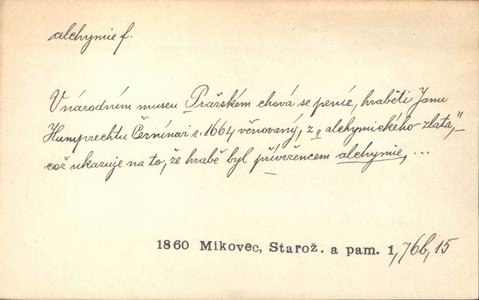 alchymie f.
V národním museu Pražském chová se peníz, hraběti Janu
Humprechtu Černínovi r. 1664 věnovaný, z „alchymického zlata,“
což ukazuje na to, že hrabě byl přívržencem alchymie, ...
1860 Mikovec, Starož. a pam. 1, 76b, 15